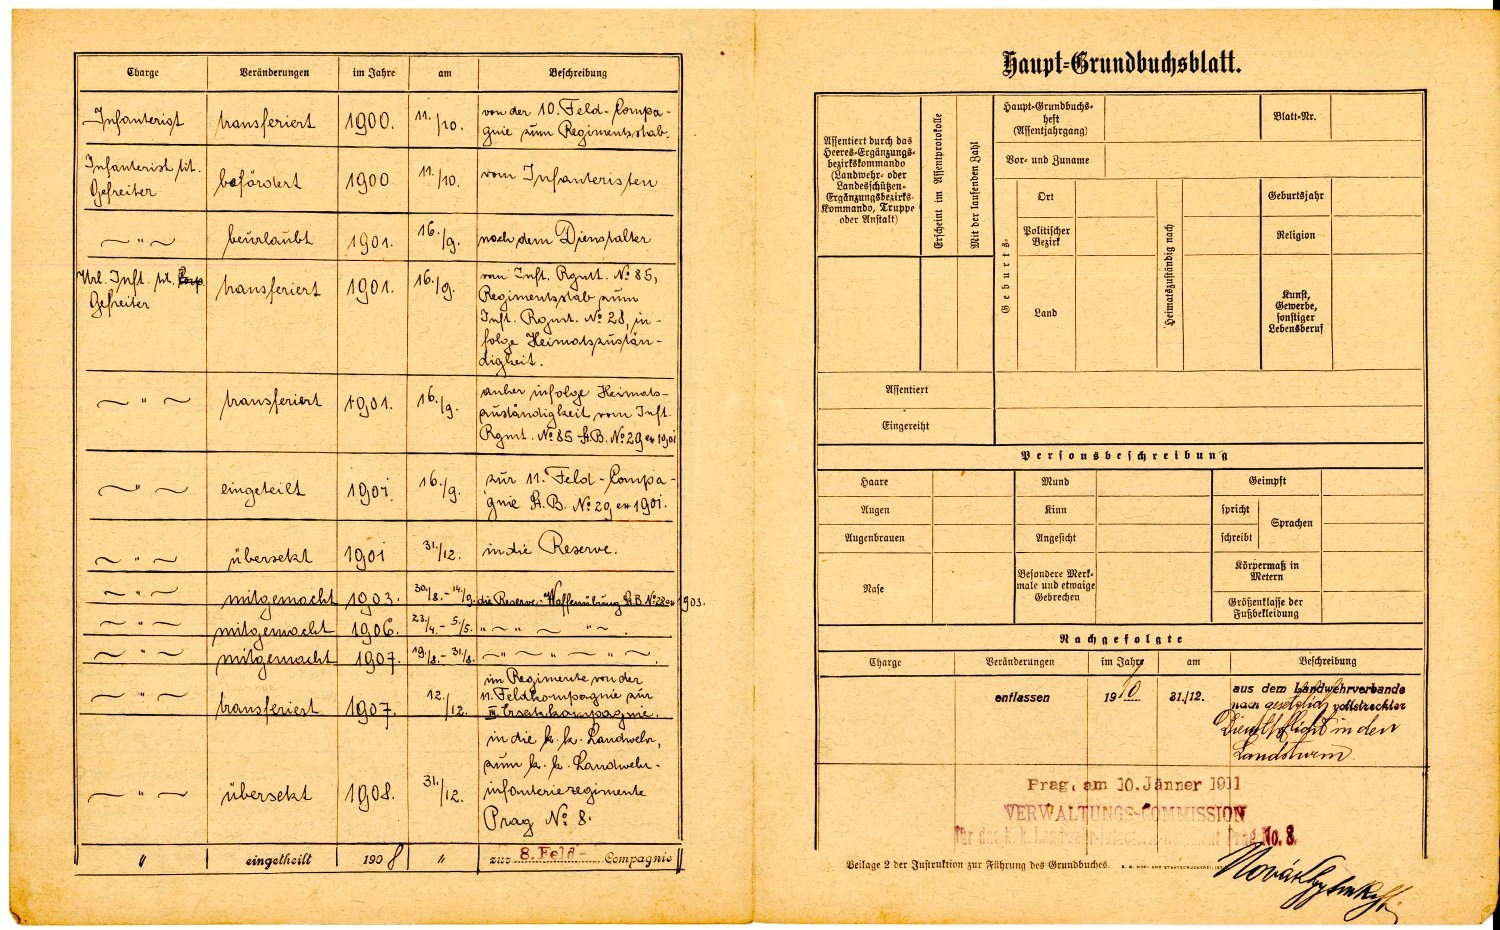 Charge Veränderungen im Jahre am Beschreibung
Infanterist transferiert 1900. 11./10. von der 10. Feld-Compa-
gnie zum Regimentsstab.
Infanterist tit. Gefreiter befördert 1900 11./10. vom Infanteristen
〃 beurlaubt 1901. 16./9. nach dem Dienstalter
Url. Inft. tit. Gefreiter transferiert 1901. 16./9. vom Inft. Rgmt. № 85,
Regimentsstab zum
Inft. Rgmt. № 28, in-
folge Heimatszustän-
digkeit.
〃 transferiert 1901. 16./9. anher infolge Heimats-
zuständigkeit vom Inft.
Rgmt. № 85 St.B. № 29 ex 1901
〃 eingeteilt 1901. 16./9. zur 11. Feld-Compa-
gnie St.B. № 29 ex 1901.
〃 übersetzt 1901 31./12. in die Reserve.
〃 mitgemacht 1903. 30/8.-14/9. die Reserve-Waffenübung St.B. № 280 ex 1903.
〃 mitgemacht 1906. 23/4.-5/5. 〃 〃
〃 mitgemacht 1907. 19/8.-31/8. 〃 〃 〃
〃 transferiert 1907. 12./12. im Regimente von der
11. Feldkompagnie zur
III. Ersatzkompagnie.
〃 übersetzt 1908. 31./12. in die k. k. Landwehr,
zum k. k. Landwehr-
infanterieregimente
Prag № 8.
〃 eingetheilt 1908 〃 zur 8. Feld- Compagnie
Haupt-Grundbuchsblatt.
Assentiert durch das
Heeres-Ergänzungs-
bezirkskommando
(Landwehr- oder
Landesschützen-
Ergänzungsbezirks-
Kommando, Truppe
oder Anstalt)
Erscheint im Assentprotokolle
Mit der laufenden Zahl
Haupt-Grundbuchs-
heft
(Assentjahrgang)
Blatt-Nr.
Vor- und Zuname
Geburts-
Ort
Politischer
Bezirk
Land
Heimatszuständig nach
Geburtsjahr
Religion
Kunst,
Gewerbe,
sonstiger
Lebensberuf
Assentiert
Eingereiht
Personsbeschreibung
Haare Mund Geimpft
Augen Kinn spricht Sprachen
Augenbrauen Angesicht schreibt
Nase Besondere Merk-
male und etwaige
Gebrechen
Körpermaß in
Metern
Größenklasse der
Fußbekleidung
Nachgefolgte
Charge Veränderungen im Jahre am Beschreibung
entlassen 1910 31./12. aus dem Landwehrverbande
nach gesetzlich vollstreckter
Dienstpflicht in den
Landsturm
Prag, am 10. Jänner 1911
VERWALTUNGS-COMMISSION
für das k. k. Landwehr-Infanterieregiment Prag No. 8.
Beilage 2 der Instruktion zur Führung des Grundbuches. K. K. HOF- UND STAATSDRUCKEREI.